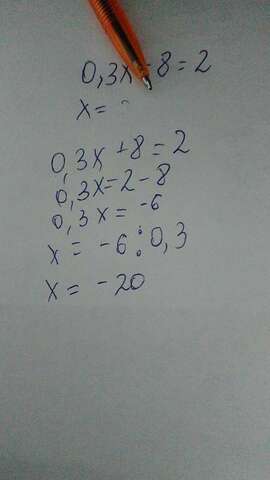 0,3x 8=2
x=
0,3x+8=2
0,3x=2-8
0,3x= -6
x = -6:0,3
x = -20